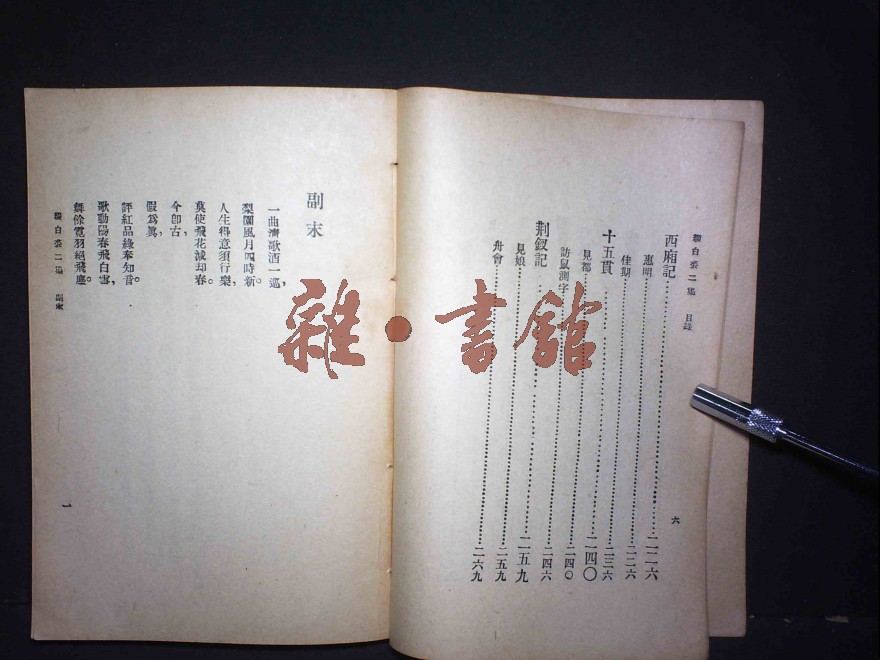 綴白裘二集 目錄 六
西廂記……二二六
惠明……二二六
佳期……二三六
十五貫……二四〇
見都……二四〇
訪鼠測字……二四六
荆釵記……二五九
見娘……二五九
舟會……二六九
副末
一曲清歌酒一巡,
梨園風月四時新。
人生得意須行樂,
莫使飛花減却春。
今卽古,
假爲眞,
評紅品綠奉知音。
歌動陽春飛白雪,
舞餘霓羽絕飛塵。
綴白裘二集 副末 一
雜·書館